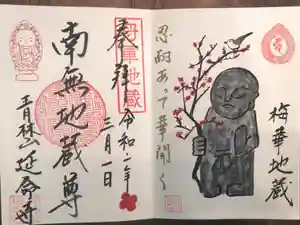 奉拝
令和二年
三月一日
南無地蔵尊
青林山延命寺
忍耐あって華開く
梅華地蔵